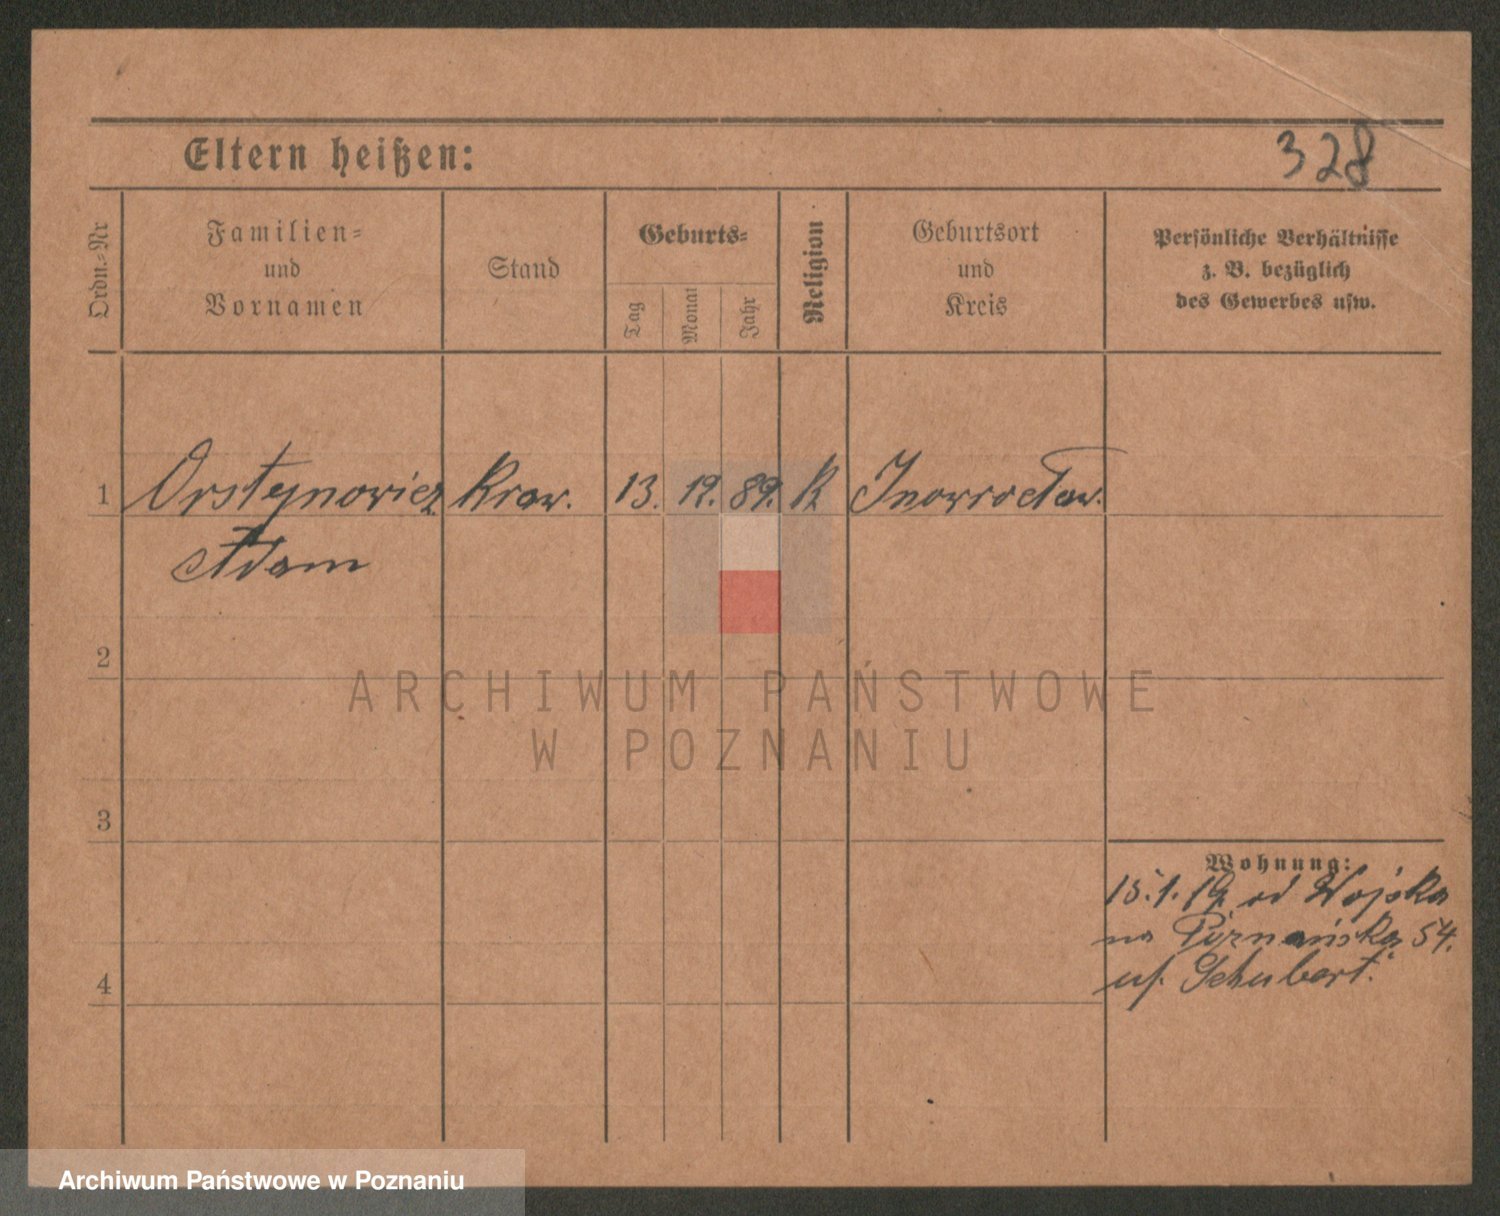 Eltern heißen:
328
Ordn.-Nr
Familien-
und
Vornamen
Stand
Geburts-
Tag
Monat
Jahr
Religion
Geburtsort
und
Kreis
Persönliche Verhältnisse
z. B. bezüglich
des Gewerbes usw.
1 Orstynowicz Kraw. 13. 12. 89. K Inowrocław.
Adam
2
ARCHIWUM PAŃSTWOWE
W POZNANIU
3
Wohnung:
15.1.19 od Wojska
na Poznańska 54.
Schubert.
4
Archiwum Państwowe w Poznaniu